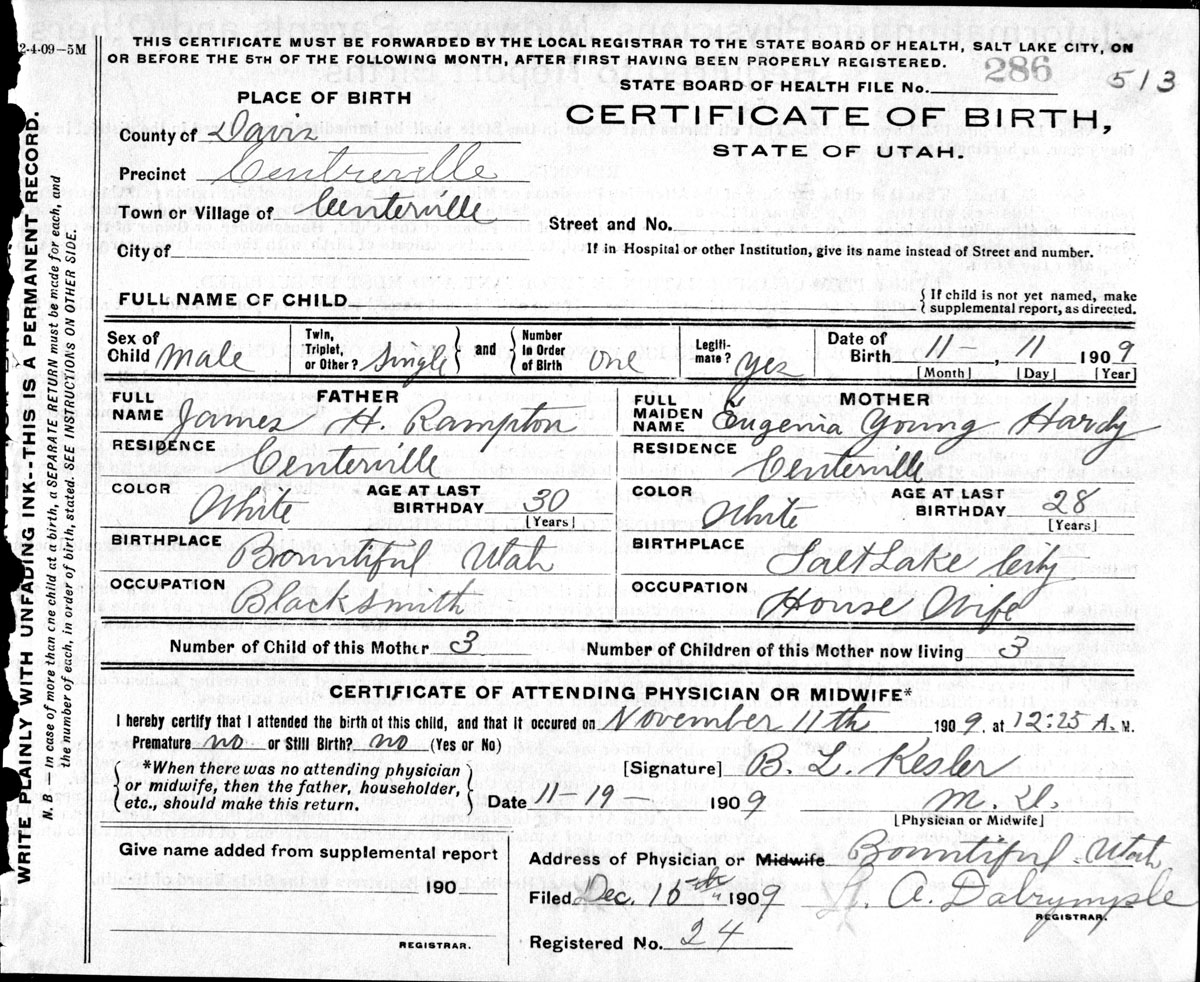 2-4-09-5M
THIS CERTIFICATE MUST BE FORWARDED BY THE LOCAL REGISTRAR TO THE STATE BOARD OF HEALTH, SALT LAKE CITY, ON
OR BEFORE THE 5TH OF THE FOLLOWING MONTH, AFTER FIRST HAVING BEEN PROPERLY REGISTERED.
STATE BOARD OF HEALTH FILE No. 286 513
PLACE OF BIRTH
CERTIFICATE OF BIRTH,
STATE OF UTAH.
County of Davis
Precinct Centreville
Town or Village of Centerville
Street and No.
City of
If in Hospital or other Institution, give its name instead of Street and number.
FULL NAME OF CHILD
{If child is not yet named, make
supplemental report, as directed.
Sex of Child Male Twin, Triplet, or Other? Single } and { Number in Order of Birth One Legiti-mate? Yes Date of Birth 11 - 11 1909
[Month] [Day] [Year]
FATHER
FULL NAME James H. Rampton
RESIDENCE Centerville
COLOR White AGE AT LAST BIRTHDAY 30 [Years]
BIRTHPLACE Bountiful Utah
OCCUPATION Blacksmith
MOTHER
FULL MAIDEN NAME Eugenia Young Hardy
RESIDENCE Centerville
COLOR White AGE AT LAST BIRTHDAY 28 [Years]
BIRTHPLACE Salt Lake City
OCCUPATION House Wife
Number of Child of this Mother 3 Number of Children of this Mother now living 3
CERTIFICATE OF ATTENDING PHYSICIAN OR MIDWIFE*
I hereby certify that I attended the birth of this child, and that it occured on November 11th 1909, at 12:25 A. M.
Premature no or Still Birth? no (Yes or No)
{*When there was no attending physician
or midwife, then the father, householder,
etc., should make this return.}
[Signature] B. L. Kesler
Date 11-19- 1909 M. D.
[Physician or Midwife]
Give name added from supplemental report
190
REGISTRAR.
Address of Physician or Midwife Bountiful Utah
Filed Dec. 10th 1909 A. Dalrymple
REGISTRAR.
Registered No. 24
WRITE PLAINLY WITH UNFADING INK--THIS IS A PERMANENT RECORD.
N. B. — In case of more than one child at a birth, a SEPARATE RETURN must be made for each, and
the number of each, in order of birth, stated. SEE INSTRUCTIONS ON OTHER SIDE.